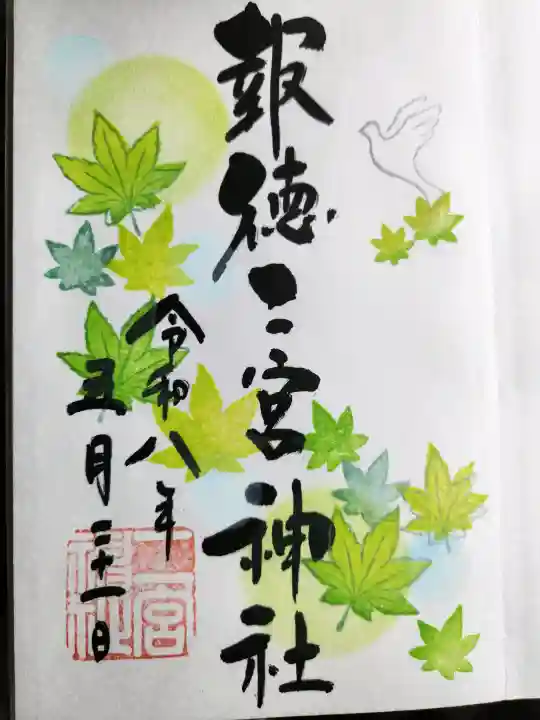 報徳二宮神社
令和八年
五月三十一日
二宮
神社